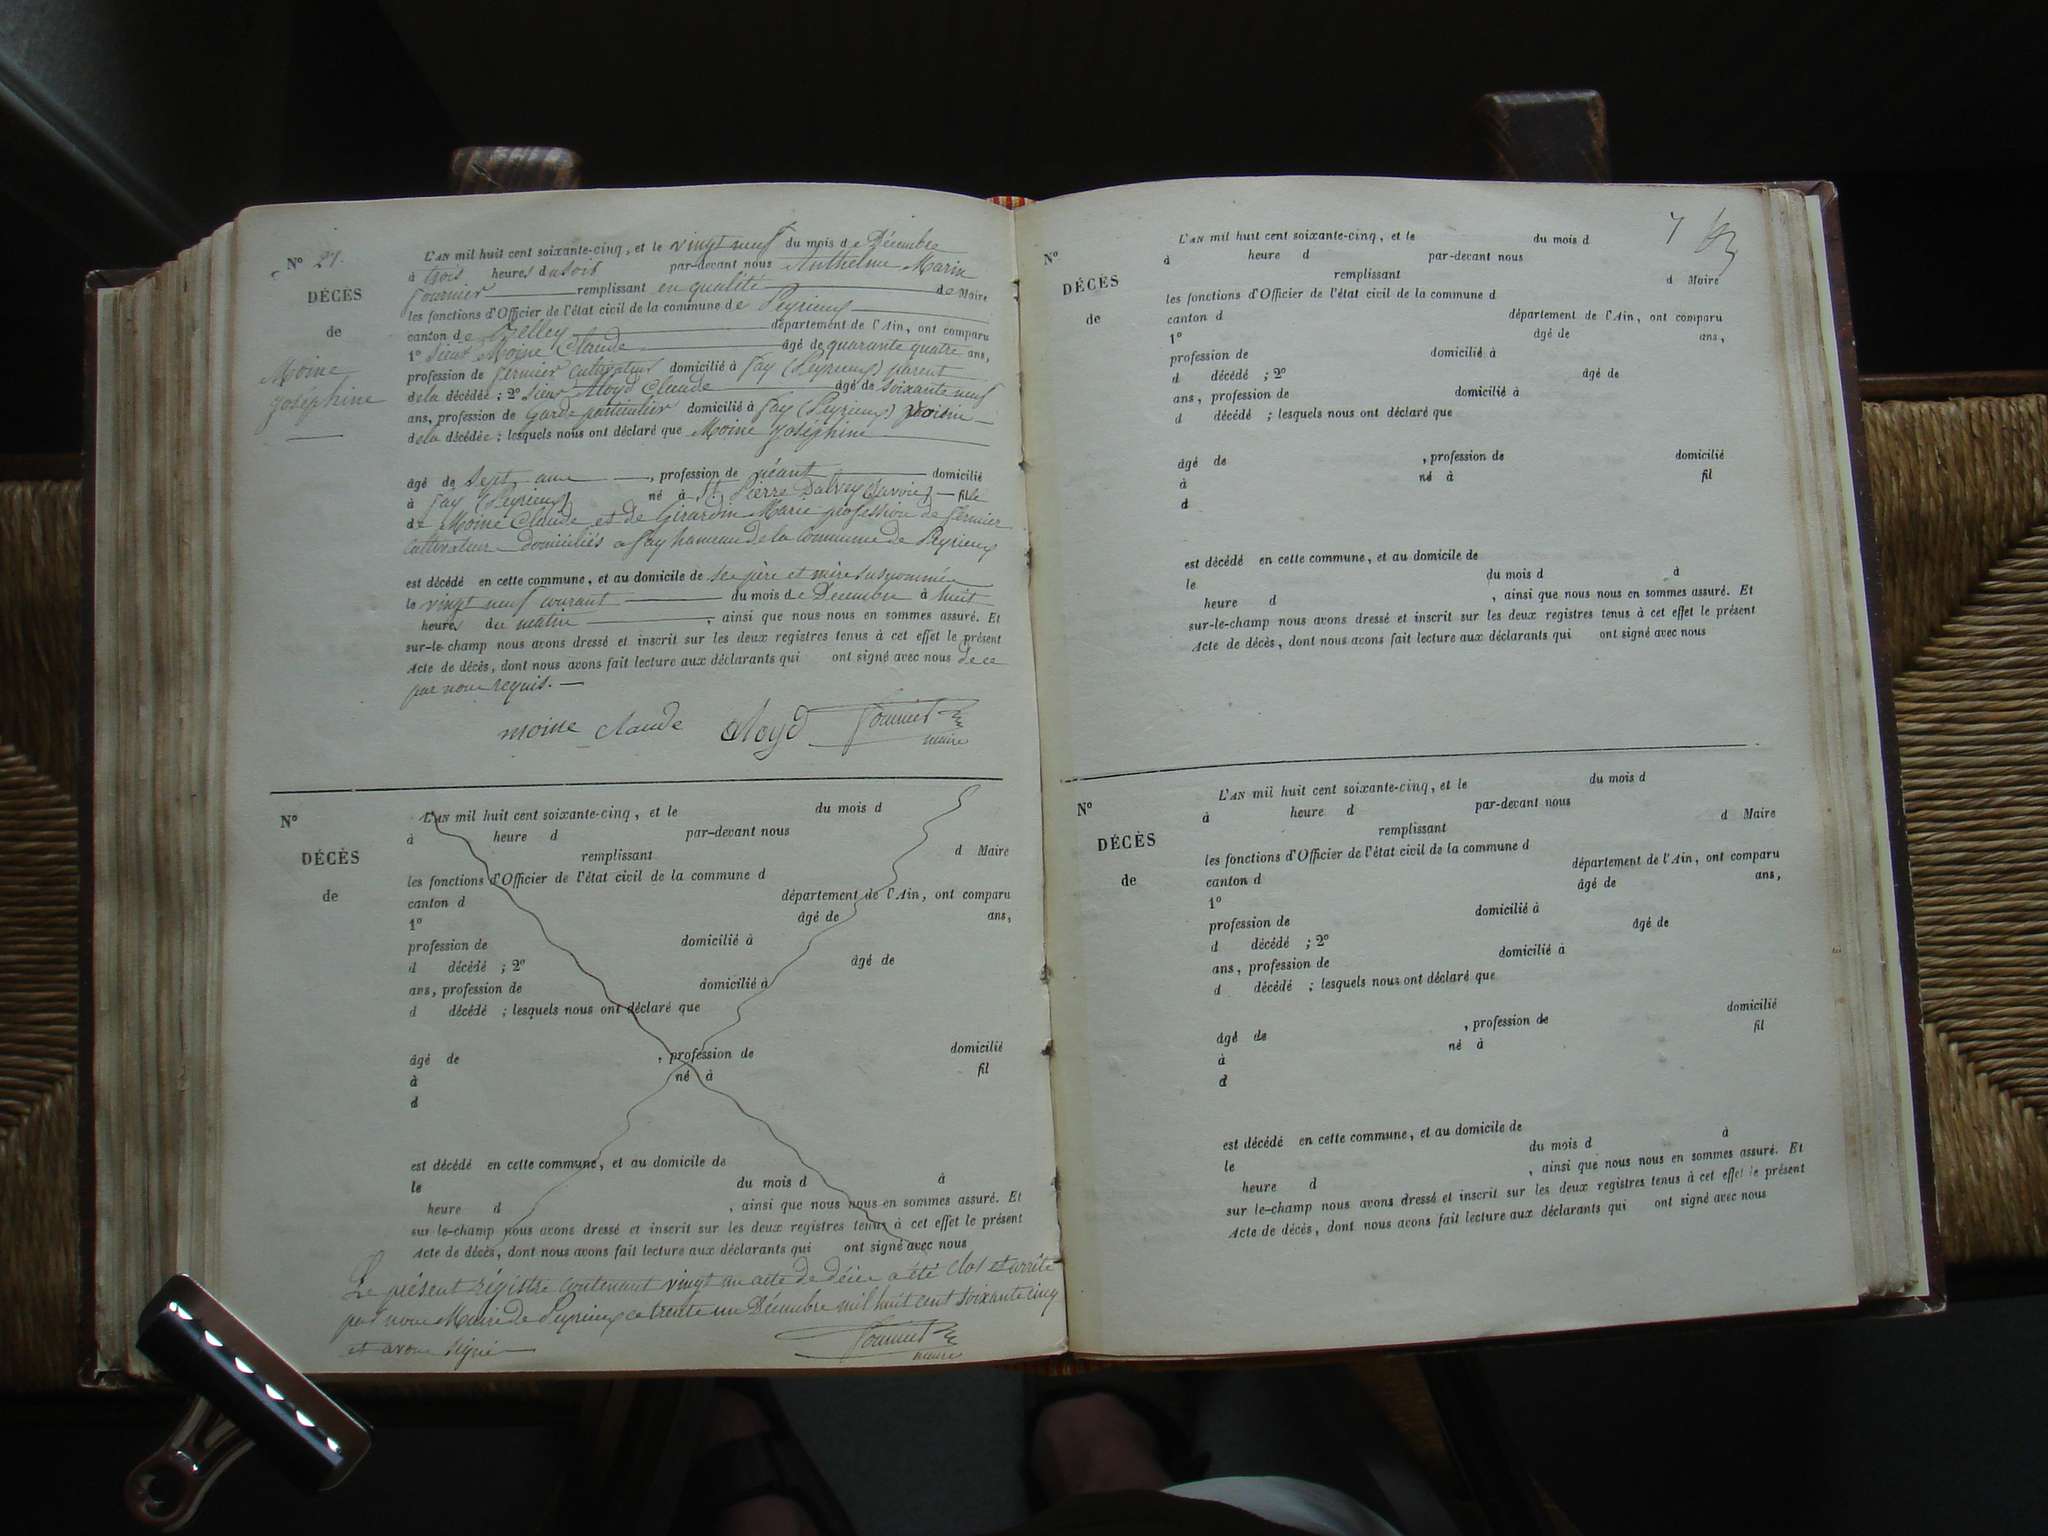 N° 21.
DÉCÈS
de
Moine
Joséphine
L'AN mil huit cent soixante-cinq, et le vingt neuf du mois de Décembre
à trois heures du soir par-devant nous Anthelme Marin
Fournier remplissant en qualité de Maire
les fonctions d'Officier de l'état civil de la commune de Peyrieux
canton de Belley département de l'Ain, ont comparu
1° sieur Moine Claude âgé de quarante quatre ans,
profession de fermier cultivateur domicilié à Fay (Peyrieux) parent
de la décédée ; 2° sieur Aloyd Claude âgé de soixante neuf
ans, profession de garde particulier domicilié à Fay (Peyrieux) voisin
de la décédée ; lesquels nous ont déclaré que Moine Joséphine
âgé de sept ans , profession de néant domicilié
à Fay (Peyrieux) né à St Pierre Dalvey (Savoie) fille
de Moine Claude et de Girardin Marie profession de fermier
cultivateur domiciliés a Fay hameau de la commune de Peyrieux
est décédé en cette commune, et au domicile de ses père et mère susnommés
le vingt neuf courant du mois de Décembre à huit
heures du matin , ainsi que nous nous en sommes assuré. Et
sur-le-champ nous avons dressé et inscrit sur les deux registres tenus à cet effet le présent
Acte de décès, dont nous avons fait lecture aux déclarants qui ont signé avec nous de ce
par nous requis.
moine claude Aloyd Fournier
maire
N°
DÉCÈS
de
L'AN mil huit cent soixante-cinq, et le du mois d
à heure d par-devant nous
remplissant d Maire
les fonctions d'Officier de l'état civil de la commune d
canton d département de l'Ain, ont comparu
1° âgé de ans,
profession de domicilié à
d décédé ; 2° âgé de
ans, profession de domicilié à
d décédé ; lesquels nous ont déclaré que
âgé de , profession de domicilié
à né à fil
d
est décédé en cette commune, et au domicile de
le du mois d à
heure d , ainsi que nous nous en sommes assuré. Et
sur le-champ nous avons dressé et inscrit sur les deux registres tenus à cet effet le présent
Acte de décès, dont nous avons fait lecture aux déclarants qui ont signé avec nous
Le présent régistre contenant vingt un acte de décès a été clos et arrêté
par nous Maire de Peyrieux ce trente un Décembre mil huit cent soixante cinq
et avons signé
Fournier
maire
7
N°
DÉCÈS
de
L'AN mil huit cent soixante-cinq, et le du mois d
à heure d par-devant nous
remplissant d Maire
les fonctions d'Officier de l'état civil de la commune d
canton d département de l'Ain, ont comparu
1° âgé de ans,
profession de domicilié à
d décédé ; 2° âgé de
ans, profession de domicilié à
d décédé ; lesquels nous ont déclaré que
âgé de , profession de domicilié
à né à fil
d
est décédé en cette commune, et au domicile de
le du mois d à
heure d , ainsi que nous nous en sommes assuré. Et
sur-le-champ nous avons dressé et inscrit sur les deux registres tenus à cet effet le présent
Acte de décès, dont nous avons fait lecture aux déclarants qui ont signé avec nous
N°
DÉCÈS
de
L'AN mil huit cent soixante-cinq, et le du mois d
à heure d par-devant nous
remplissant d Maire
les fonctions d'Officier de l'état civil de la commune d
canton d département de l'Ain, ont comparu
1° âgé de ans,
profession de domicilié à
d décédé ; 2° âgé de
ans, profession de domicilié à
d décédé ; lesquels nous ont déclaré que
âgé de , profession de domicilié
à né à fil
d
est décédé en cette commune, et au domicile de
le du mois d à
heure d , ainsi que nous nous en sommes assuré. Et
sur le-champ nous avons dressé et inscrit sur les deux registres tenus à cet effet le présent
Acte de décès, dont nous avons fait lecture aux déclarants qui ont signé avec nous